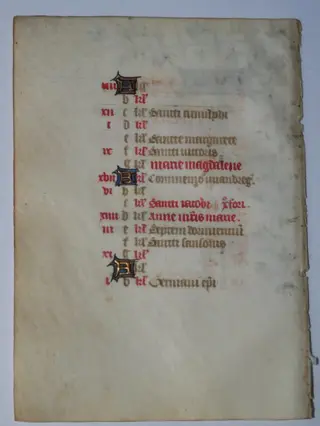 viii A kl
b kl
xii c kl Sancti arnulphi
i d kl
e kl Sancte margarete
ix f kl Sancti victoris
g kl marie magdalene
xvii A kl
vi b kl
c kl Sancti iacobi. xpofori.
xiiii d kl Anne mris marie.
iii e kl Septem dormientium
f kl Sancti sansonis
xi g kl
A kl
i b kl Germani epi